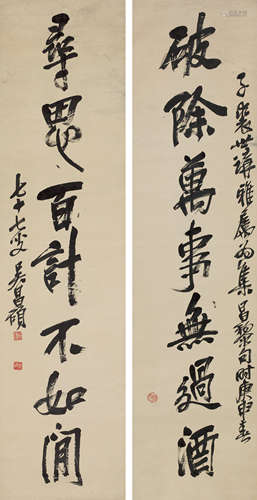 破除萬事無過酒
子裴世講雅屬為集昌黎句時庚申春
尋思百計不如閒
七十七叟吳昌碩